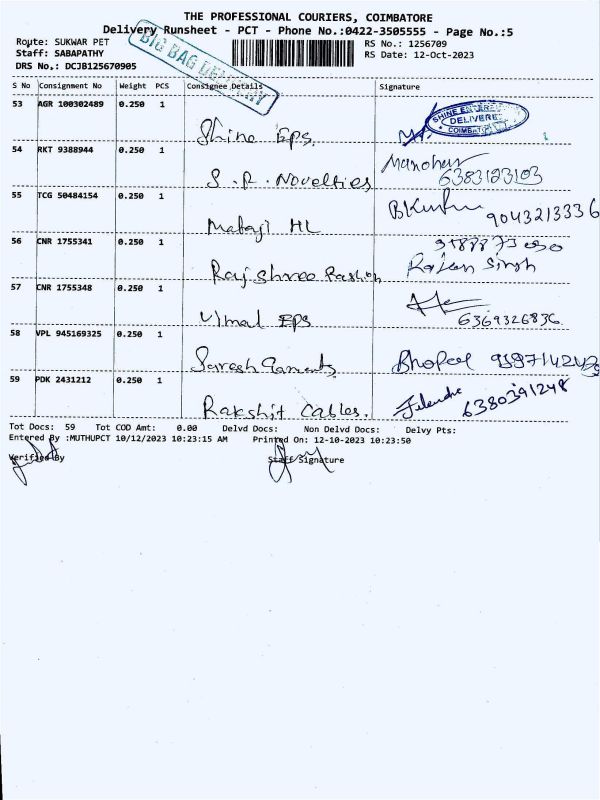 THE PROFESSIONAL COURIERS, COIMBATORE
Delivery Runsheet - PCT - Phone No.:0422-3505555 - Page No.:5
Route: SUKWAR PET RS No.: 1256709
Staff: SABAPATHY RS Date: 12-Oct-2023
DRS No.: DCJB125670905
BIG BAG DELIVERY
S No Consignment No Weight PCS Consignee Details Signature
53 AGR 100302489 0.250 1
Shine Eps. SHINE ENTER DELIVERE COIMBAT
54 RKT 9388944 0.250 1
S.R. Novelties Manohar 6383123103
55 TCG 50484154 0.250 1
Mataji HL 9043213336
56 CNR 1755341 0.250 1
Raj Shree Fashion Rajan Singh
57 CNR 1755348 0.250 1
Vimal Eps 6369326836
58 VPL 945169325 0.250 1
59 PDK 2431212 0.250 1
Rakshit Cables. 6380391248
Tot Docs: 59 Tot COD Amt: 0.00 Delvd Docs: Non Delvd Docs: Delvy Pts:
Entered By :MUTHUPCT 10/12/2023 10:23:15 AM Printed On: 12-10-2023 10:23:50
Verified By Staff Signature